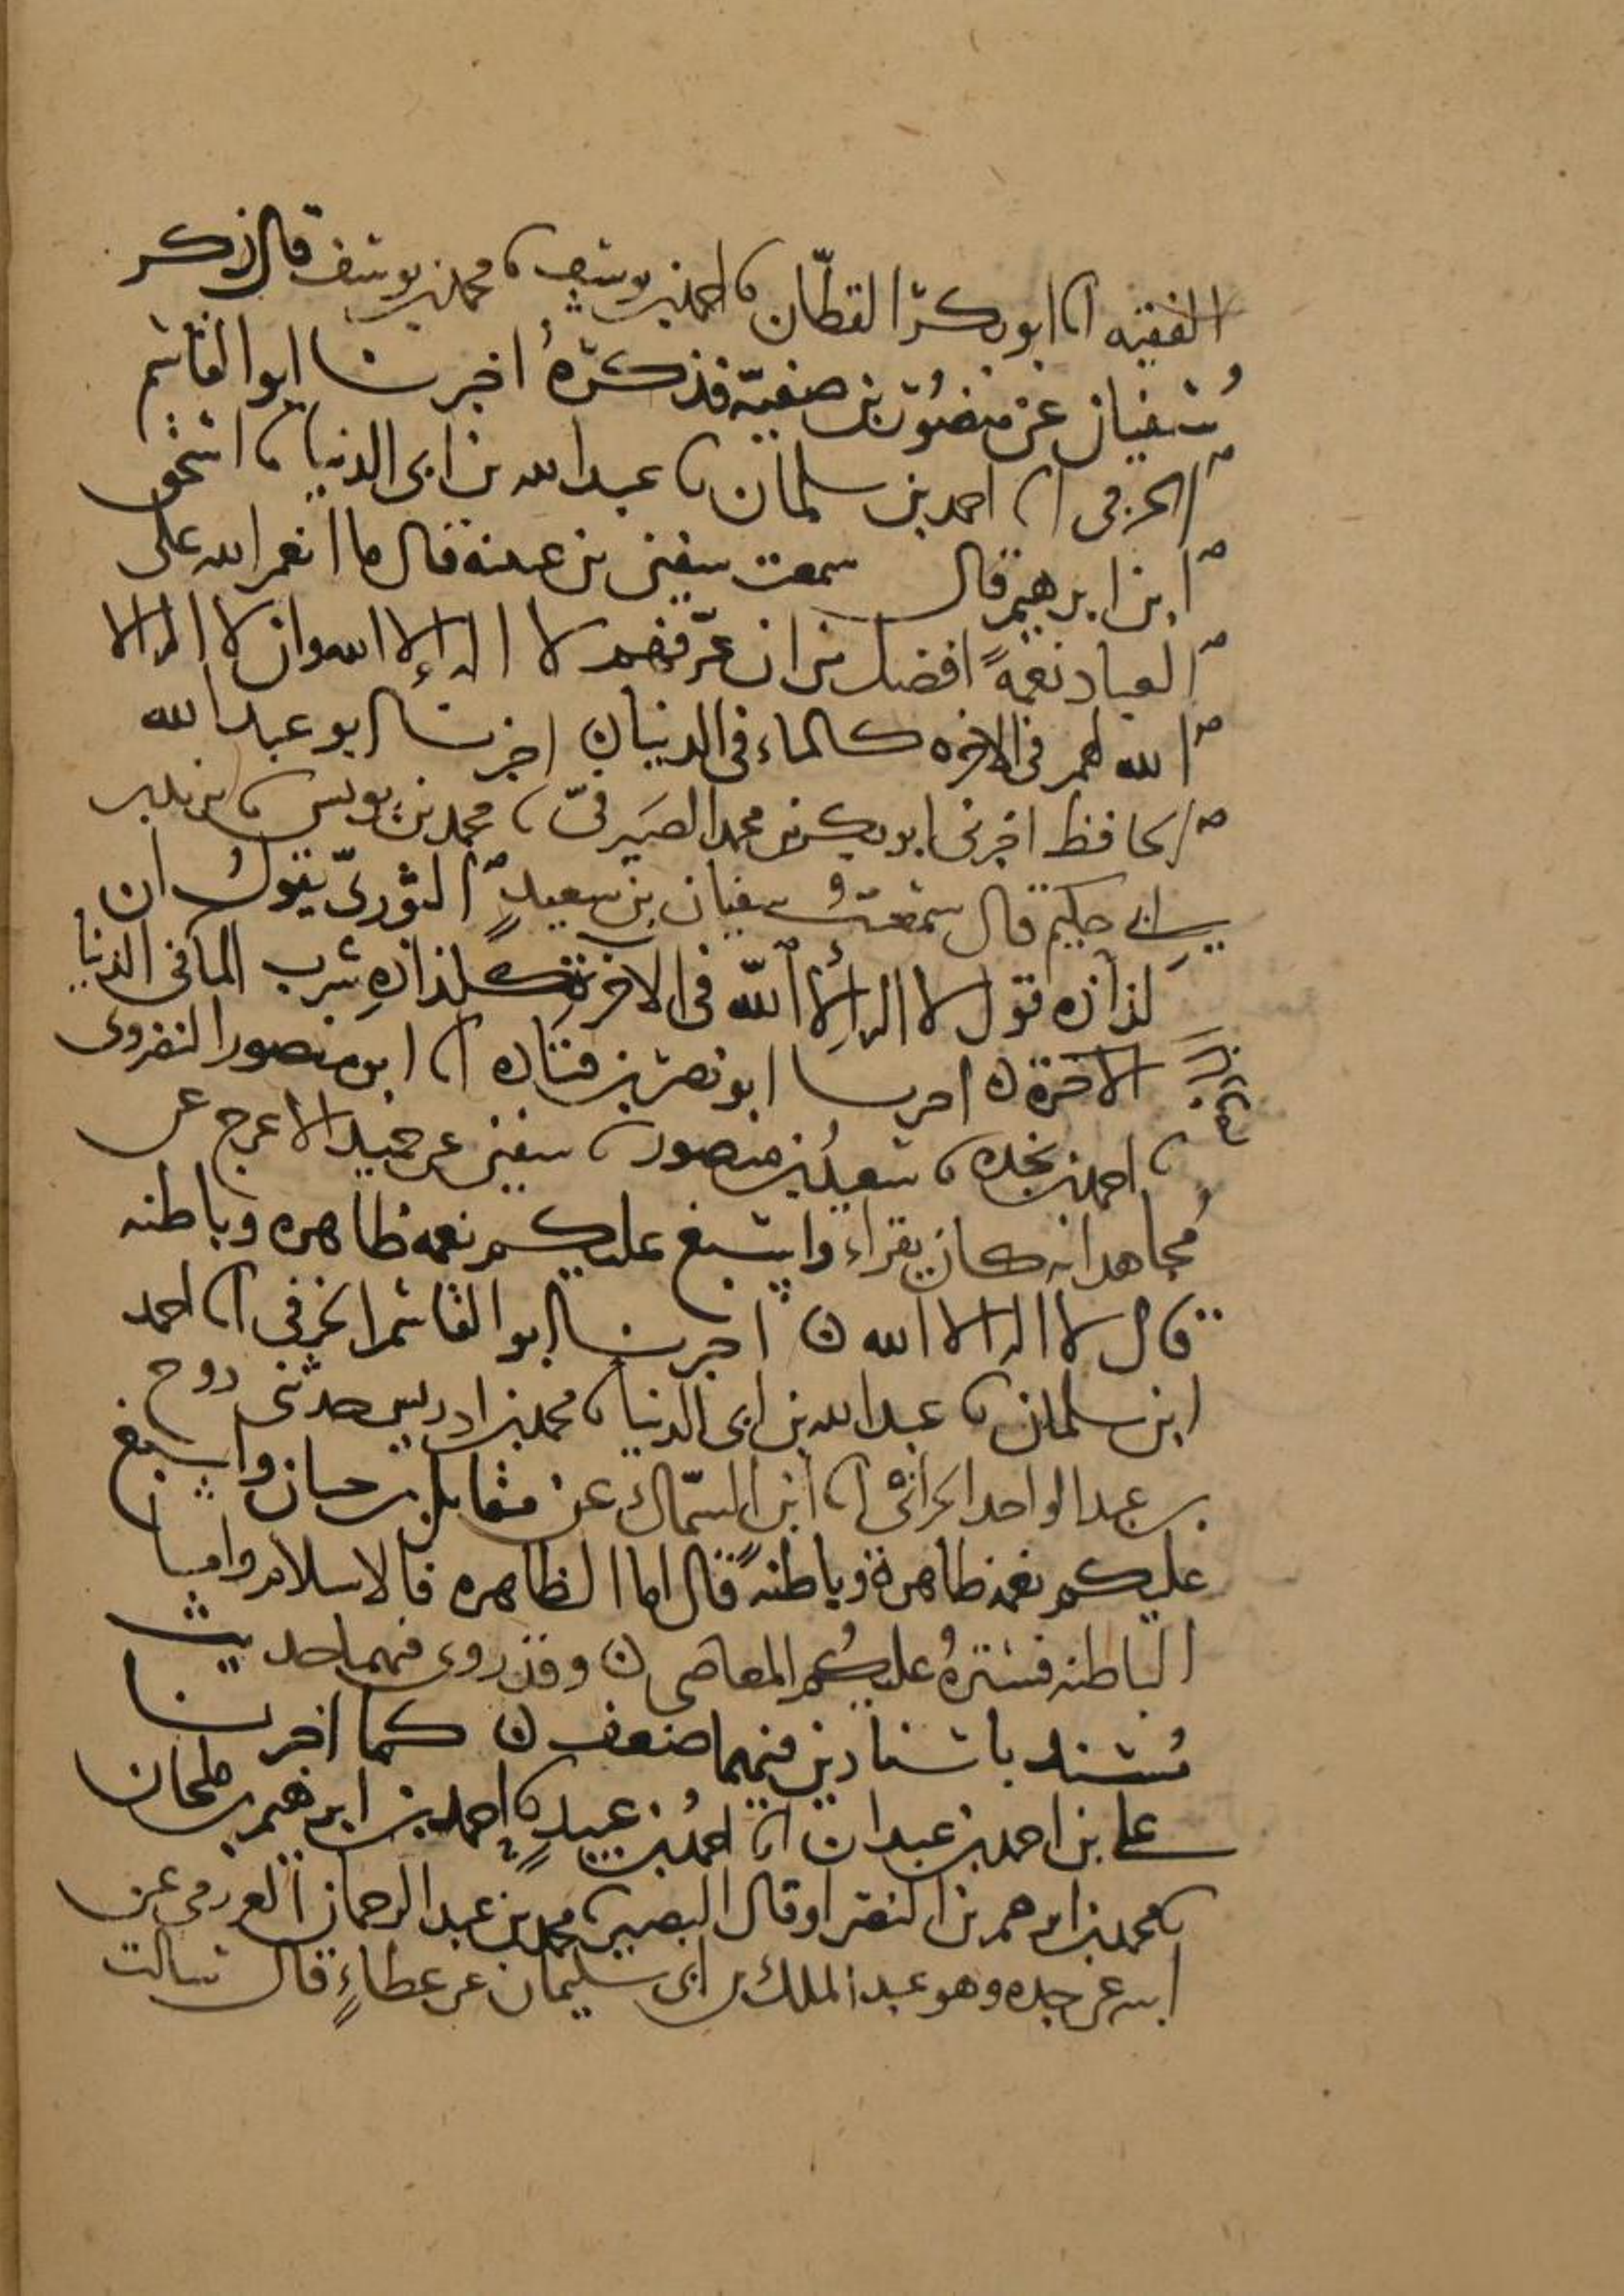 الفقيه انا ابو بكر القطان نا احمد بن يوسف نا محمد بن يوسف قال ذكر
سفيان عن منصور بن صفية فذكره اخبرنا ابو القاسم
الحرفي انا احمد بن سلمان نا عبد الله بن ابى الدنيا نا اسحق
ابن ابرهيم قال سمعت سفين بن عيينة قال ما انعم الله على
العباد نعمةً افضل من ان عرّفهم لا اله إلا الله وان لا اله الا
الله لهم فى الاخره كالماء فى الدنيا ن اخبرنا ابو عبد الله
الحافظ اخبرنى ابو بكر بن محمد الصيرفىّ نا محمد بن يونس نا
حكيم قال سمعتُ سفيان بن سعيدٍ الثورىّ يقول ان
لذاذه قول لا اله إلا الله فى الاخرةِ كلذاذهِ شرب الما فى الدنيا
الاخرة ن اخبرنا ابو نصر بن قتاده انا ابو منصور النضروى
نا احمد بن نجده نا سعيدُ بن منصور نا سفين عن حميد الاعرج عن
مُجاهد انه كان يقراء واسبغ عليكم نعمه ظاهره وباطنه
قال لا اله الا الله ن اخبرنا ابو القاسم الحرفى انا احمد
ابن سلمان نا عبد الله بن ابى الدنيا نا محمد بن ادريس حدثنى روح
بن عبد الواحد الحرانى انا ابن السمّاك عن مقاتل بن حيان واسبغ
عليكم نعمه ظاهرة وباطنهً قال اما الظاهره فالاسلام واما
الباطنه فسترهُ عليكُم المعاصى ن وقد روى فيهما حديث
مُسند باسنادين فيهما ضعف ن كما اخبرنا
على بن احمد بن عبدان انا احمدُ بن عبيدٍ نا احمد بن ابرهيم بن ملحان
نا محمد بن ابرهيم بن النضر او قال البصير نا محمد بن عبد الرحمان العرزمى عن
ابيه عن جده وهو عبد الملك بن ابى سليمان عن عطاءٍ قال سالت